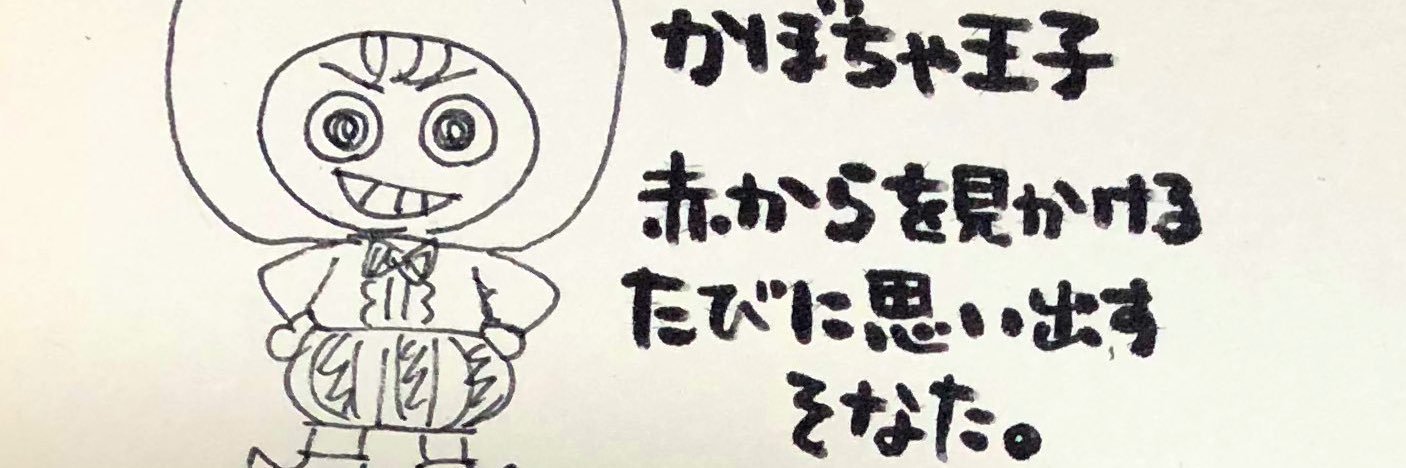 かぼちゃ王子
赤からを見かける
たびに思い出す
そなた。